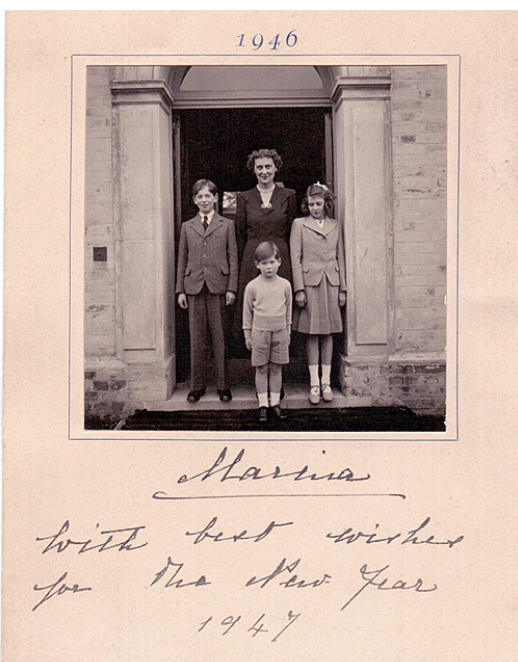 1946
Marina
With best wishes
for the New Year
1947